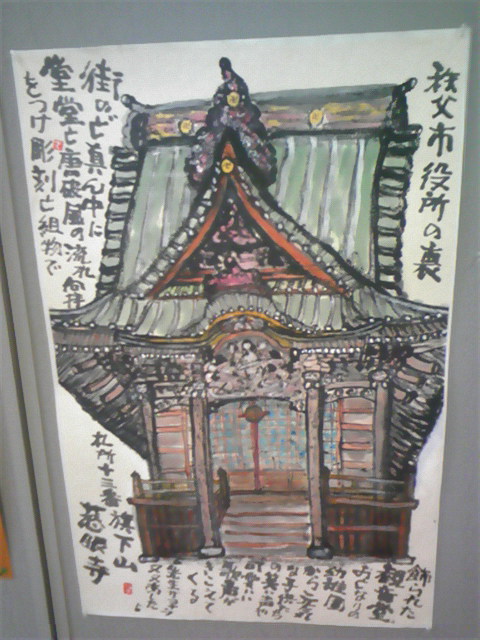 秩父市役所の裏
街のど真ん中に
堂堂と唐破風の流れ向拝
をつけ彫刻と組物で
飾られた
観音堂。
おとなりの
幼稚園
から元
の子供たち
の
堂に
きこえて
くる
札所十三番
旗下山
慈眼寺